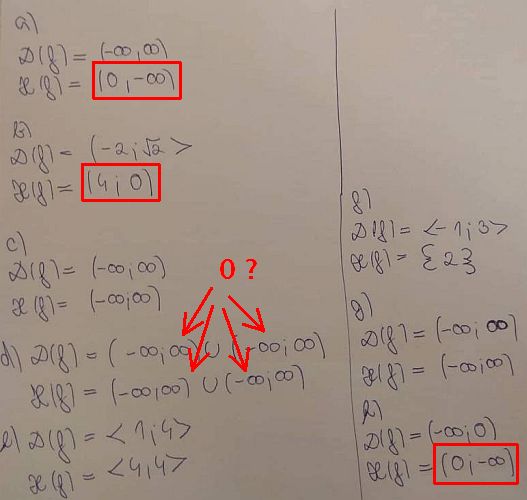 a)
D(f) = (-∞, ∞)
H(f) = (0, -∞)
b)
D(f) = (-2; √2 >
H(f) = (4; 0)
c)
D(f) = (-∞; ∞)
H(f) = (-∞; ∞)
0 ?
d) D(f) = (-∞; ∞) ∪ (-∞; ∞)
H(f) = (-∞; ∞) ∪ (-∞; ∞)
e) D(f) = < 1; 4 >
H(f) = < 4, 4 >
f)
D(f) = < -1; 3 >
H(f) = { 2 }
g)
D(f) = (-∞; ∞)
H(f) = (-∞; ∞)
h)
D(f) = (-∞; 0)
H(f) = (0; -∞)